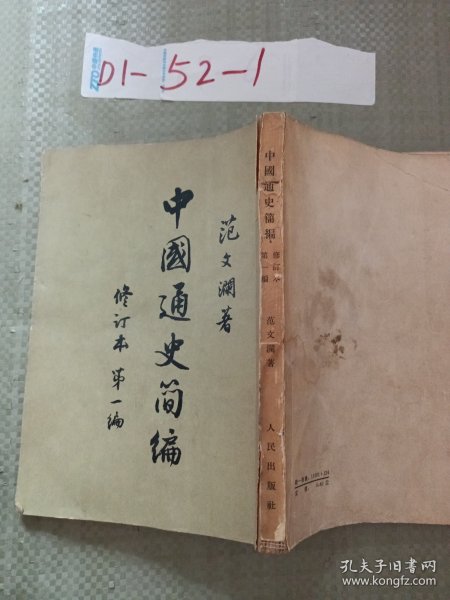 D1-52-1
范文澜著
中國通史简编
修订本 第一编
中國通史簡編
修訂本
第一編
范文瀾著
人民出版社
孔夫子旧书网
www.kongfz.com